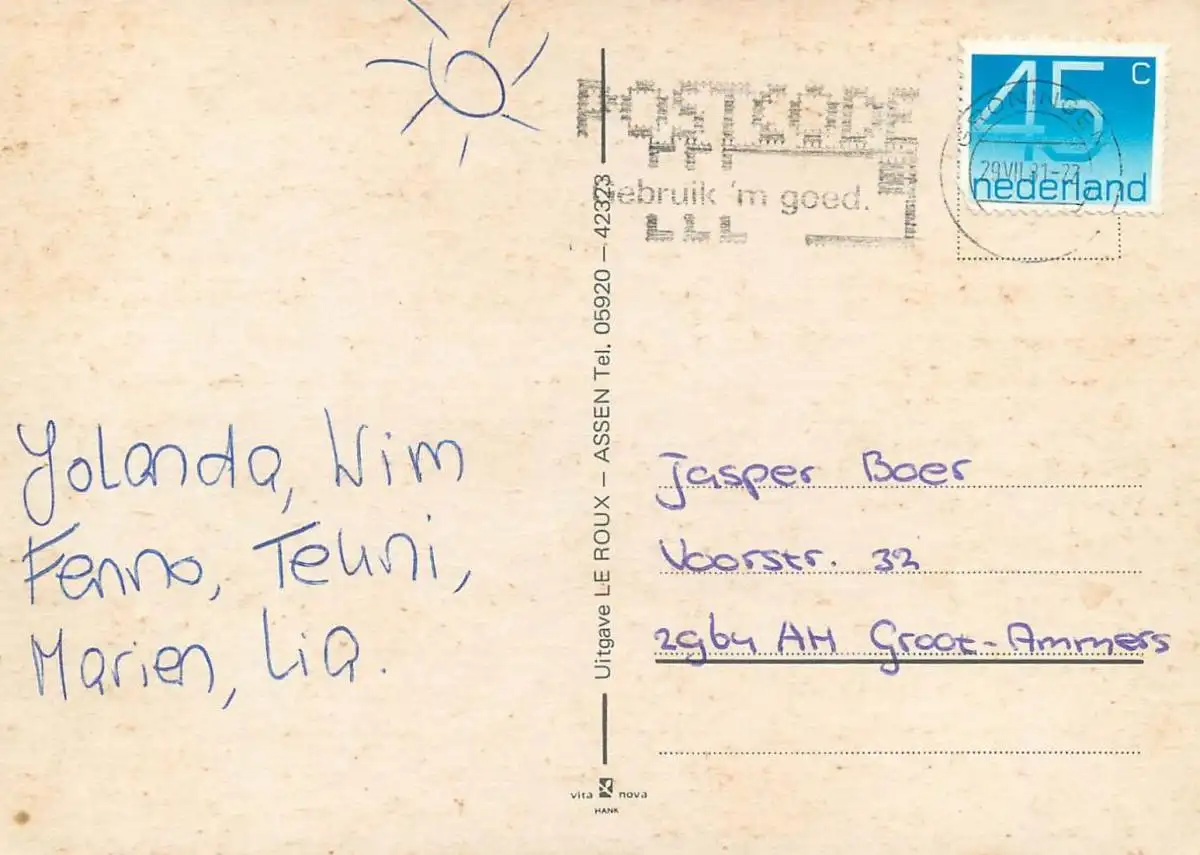 Yolanda, Wim
Fenno, Teuni,
Marien, Lia.
Uitgave LE ROUX – ASSEN Tel. 05920 – 42323
vita nova
HANK
POSTCODE
gebruik 'm goed.
45 c
nederland
GRONINGEN
29.VII.81-22
Jasper Boer
Voorstr. 32
2964 AH Groot-Ammers